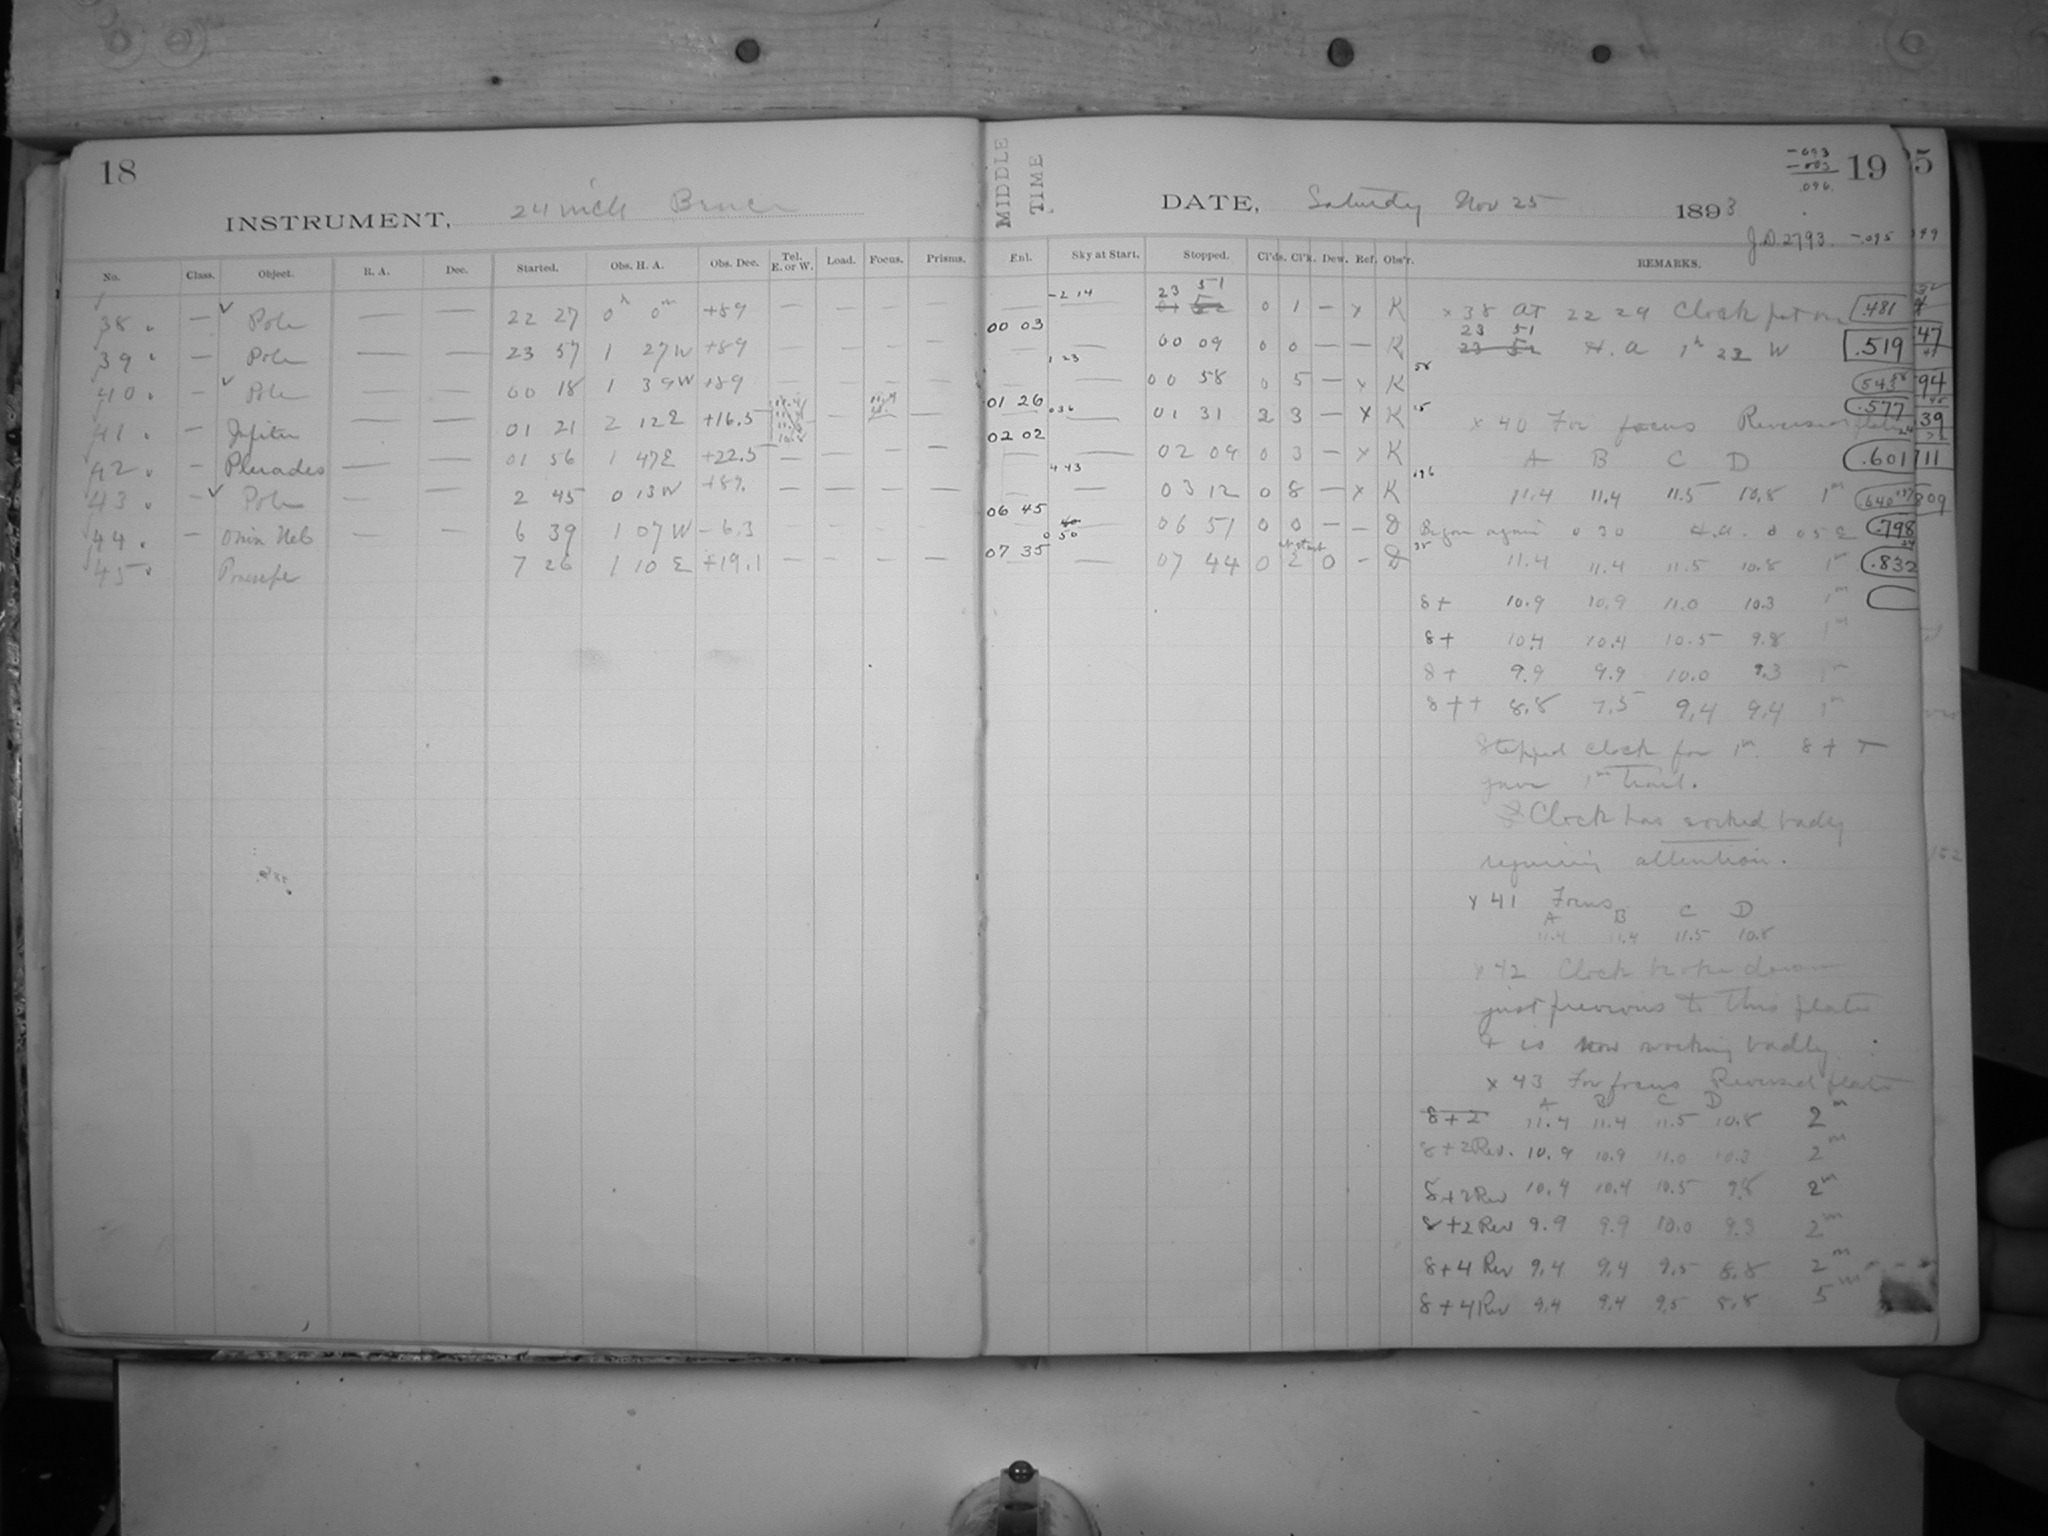 18
INSTRUMENT, 24 inch Bruce
MIDDLE TIME
DATE, Saturday Nov 25 1893
-.093
-.003
.096
19
J.D. 2793. -.095
No. Class. Object. R. A. Dec. Started. Obs. H. A. Obs. Dec. Tel. E. or W. Load. Focus. Prisms. Enl. Sky at Start. Stopped. Cl'ds. Cl'k. Dew. Ref. Obs'r. REMARKS.
38 — ✓ Pole — — 22 27 0h 0m +89 — — — — — -2 14 23 51 0 1 — x K
39 — Pole — — 23 57 1 27W +89 — — — — 00 03 00 09 0 0 — — K
40 — ✓ Pole — — 00 18 1 39W +89 — — — — 1 23 — 00 58 0 5 — x K
41 — Jupiter — — 01 21 2 12E +16.5 — — 01 26 036 — 01 31 2 3 — x K
42 — Pleiades — — 01 56 1 47E +22.5 — — — — 02 02 — 02 09 0 3 — x K
43 — ✓ Pole — — 2 45 0 13W +89 — — — — 4 43 — 03 12 0 8 — x K
44 — Orion Neb — — 6 39 1 07W -6.3 — — — — 06 45 — 06 51 0 0 — — D
45 Praesepe 7 26 1 10 E +19.1 — — — — 07 35 0 50 — 07 44 0 2 at start 0 — D
x 38 at 22 29 Clock put on .481
23 51 H.A 1h 22 W .519
.543
.577
x 40 For focus Reversion plate
A B C D .601
11.4 11.4 11.5 10.8 1m .640
Began again 0 30 H.A. 0 05 E .798
11.4 11.4 11.5 10.8 1m .832
8+ 10.9 10.9 11.0 10.3 1m
8+ 10.4 10.4 10.5 9.8 1m
8+ 9.9 9.9 10.0 9.3 1m
8++ 8.8 7.5 9.4 9.4 1m
Stopped clock for 1m. 8 +
gave 1m trail.
Clock has worked badly
requiring attention.
x 41 Focus
A B C D
11.4 11.4 11.5 10.8
x 42 Clock broke down
just previous to this plate
+ is now working badly.
x 43 For focus Reversed plate
A B C D
8+2 11.4 11.4 11.5 10.8 2m
8+2 Rev. 10.9 10.9 11.0 10.3 2m
8+2 Rev 10.4 10.4 10.5 9.8 2m
8+2 Rev 9.9 9.9 10.0 9.3 2m
8+4 Rev 9.4 9.4 9.5 8.8 2m
8+4 Rev 9.4 9.4 9.5 8.8 5m